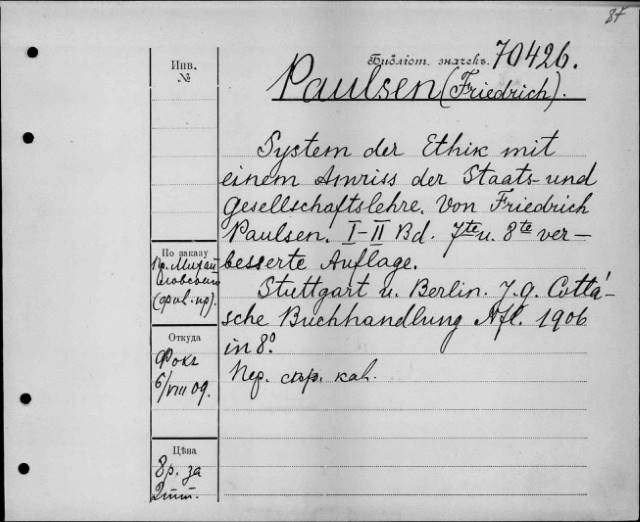 87
Библіот. значекъ. 70426.
Инв.
№
Paulsen (Friedrich).
System der Ethik mit
einem Umriss der Staats- und
Gesellschaftslehre. Von Friedrich
Paulsen. I–II Bd. 7te u. 8te ver-
besserte Auflage.
Stuttgart u. Berlin. J. G. Cotta'-
sche Buchhandlung Nfl. 1906
in 8°.
Пер. скр. кал.
По заказу
Пр. Михай
ловскій
Откуда
Фокъ
6/VIII 09.
Цѣна
8р. за
2тт.